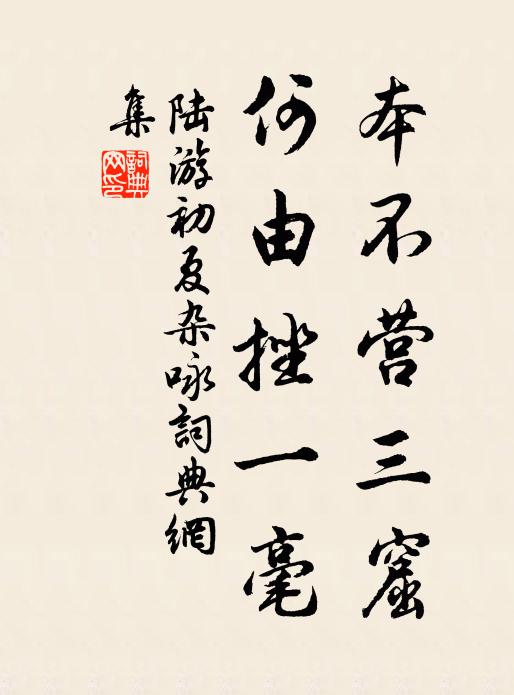 本不营三窟
何由挫一毫
陆游初夏杂咏詞典網
集
詞典
网印